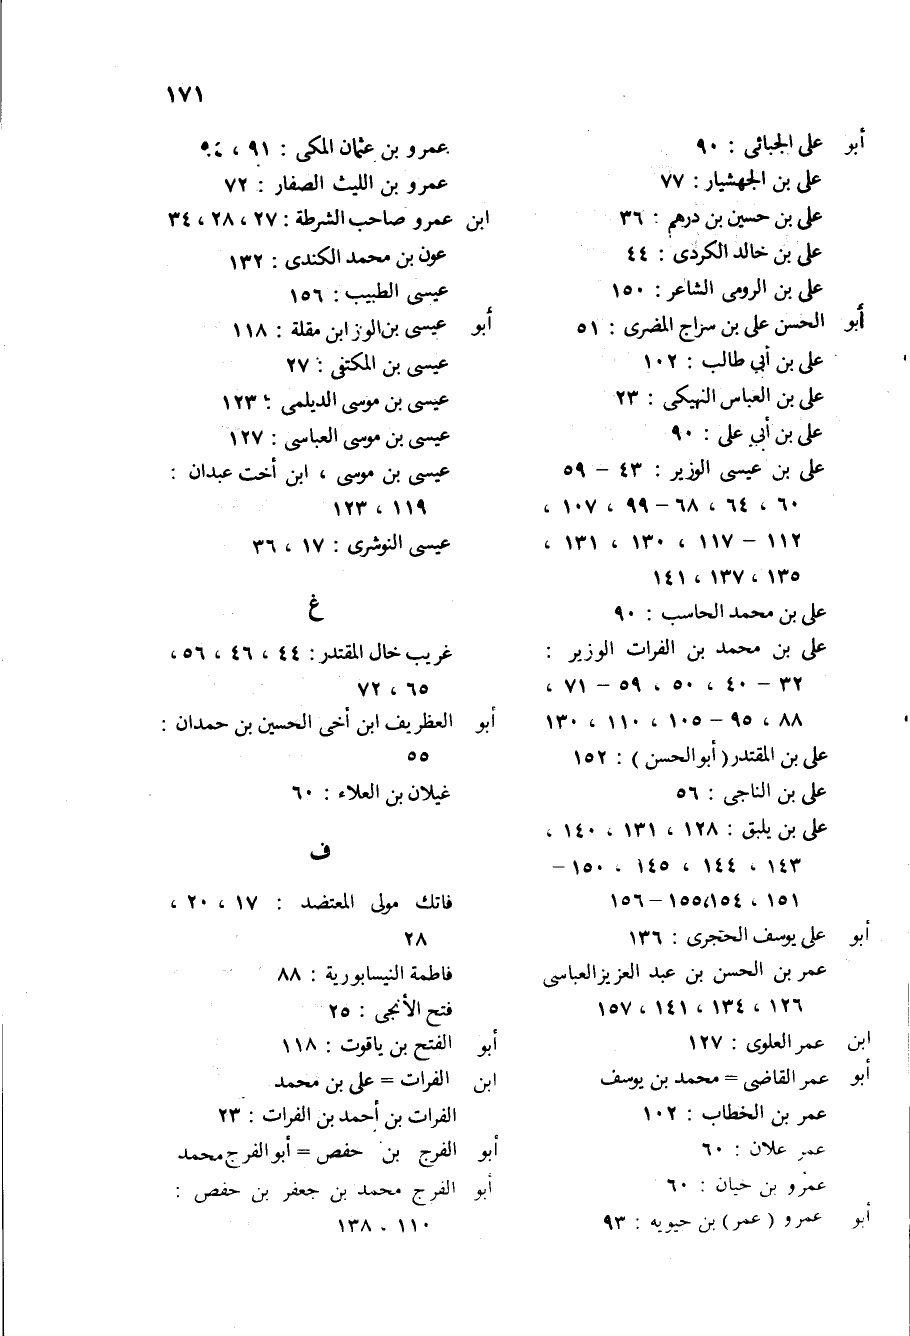 ١٧١
أبو على الجبائى : ٩٠
على بن الجهشيار : ٧٧
على بن حسين بن درهم : ٣٦
على بن خالد الكردى : ٤٤
على بن الرومى الشاعر : ١٥٠
أبو الحسن على بن سراج المصرى : ٥١
على بن أبي طالب : ١٠٢
على بن العباس النهيكى : ٢٣
على بن أبي على : ٩٠
على بن عيسى الوزير : ٤٣ – ٥٩
٦٠ ، ٦٤ ، ٦٨ – ٩٩ ، ١٠٧ ،
١١٢ – ١١٧ ، ١٣٠ ، ١٣١ ،
١٣٥ ، ١٣٧ ، ١٤١
على بن محمد الحاسب : ٩٠
على بن محمد بن الفرات الوزير :
٣٢ – ٤٠ ، ٥٠ ، ٥٩ – ٧١ ،
٨٨ ، ٩٥ – ١٠٥ ، ١١٠ ، ١٣٠
على بن المقتدر ( أبو الحسن ) : ١٥٢
على بن الناجى : ٥٦
على بن يلبق : ١٢٨ ، ١٣١ ، ١٤٠ ،
١٤٣ ، ١٤٤ ، ١٤٥ ، ١٥٠ –
١٥١ ، ١٥٤ ،١٥٥ – ١٥٦
أبو على يوسف الحتجرى : ١٣٦
عمر بن الحسن بن عبد العزيز العباسى
١٢٦ ، ١٣٤ ، ١٤١ ، ١٥٧
ابن عمر العلوى : ١٢٧
أبو عمر القاضى = محمد بن يوسف
عمر بن الخطاب : ١٠٢
عمر علان : ٦٠
عمرو بن حيان : ٦٠
أبو عمرو ( عمر ) بن حيويه : ٩٣
عمرو بن عثمان المكى : ٩١ ،
عمرو بن الليث الصفار : ٧٢
ابن عمرو صاحب الشرطة : ٢٧ ، ٢٨ ، ٣٤
عون بن محمد الكندى : ١٣٢
عيسى الطبيب : ١٥٦
أبو عيسى بن الوز ابن مقلة : ١١٨
عيسى بن المكتفى : ٢٧
عيسى بن موسى الديلمى : ١٢٣
عيسى بن موسى العباسى : ١٢٧
عيسى بن موسى ، ابن أخت عبدان :
١١٩ ، ١٢٣
عيسى النوشرى : ١٧ ، ٣٦
غ
غريب خال المقتدر : ٤٤ ، ٤٦ ، ٥٦ ،
٦٥ ، ٧٢
أبو العظريف ابن أخى الحسين بن حمدان :
٥٥
غيلان بن العلاء : ٦٠
ف
فاتك مولى المعتضد : ١٧ ، ٢٠ ،
٢٨
فاطمة النيسابورية : ٨٨
فتح الأنجى : ٢٥
أبو الفتح بن ياقوت : ١١٨
ابن الفرات = على بن محمد
الفرات بن أحمد بن الفرات : ٢٣
أبو الفرج بن حفص = أبو الفرج محمد
أبو الفرج محمد بن جعفر بن حفص :
١١٠ ، ١٣٨